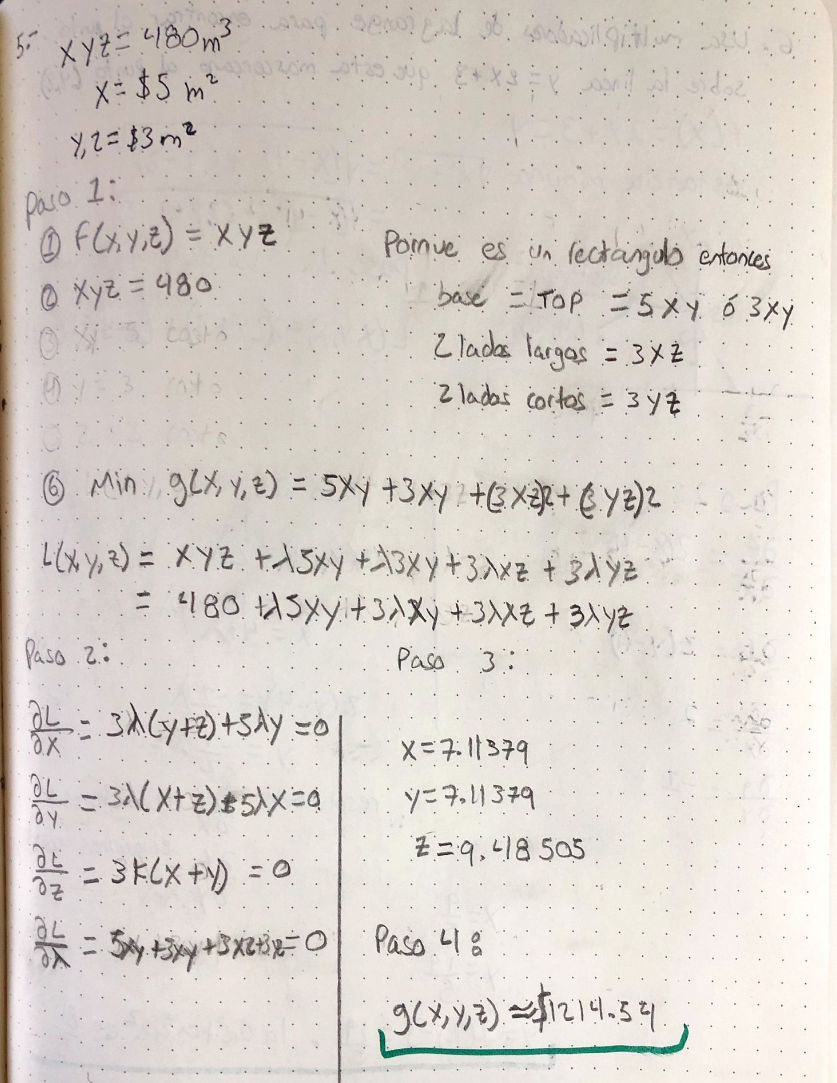 5.- xyz = 480 m³
x = $5 m²
y,z = $3 m²
Paso 1:
① F(x,y,z) = xyz
② xyz = 480
Porque es un rectangulo entonces
base = TOP = 5xy ó 3xy
2 lados largos = 3xz
2 lados cortos = 3yz
⑥ Min g(x,y,z) = 5xy + 3xy + (3xz)2 + (3yz)2
L(x,y,z) = xyz + λ5xy + λ3xy + 3λxz + 3λyz
= 480 + λ5xy + 3λxy + 3λxz + 3λyz
Paso 2:
∂L/∂x = 3λ(y+z)+5λy = 0
∂L/∂y = 3λ(x+z)+5λx = 0
∂L/∂z = 3λ(x+y) = 0
∂L/∂λ = 5xy+3xy+3xz+3z = 0
Paso 3:
x = 7.11379
y = 7.11379
z = 9.48505
Paso 4:
g(x,y,z) ≈ $1214.54